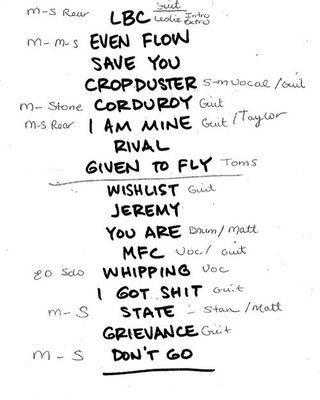 m-S Rear LBC Guit Leslie Intro Extro
m-m-s EVEN FLOW
SAVE YOU
CROPDUSTER S-m Vocal / Guit
m- Stone CORDUROY Guit
m-S Rear I AM MINE Guit / Taylor
RIVAL
GIVEN TO FLY Toms
WISHLIST Guit
JEREMY
YOU ARE Drum / Matt
MFC Voc / Guit
ED Solo WHIPPING Voc
I GOT SHIT Guit
m-S STATE - Stan / Matt
GRIEVANCE Guit
m-S DON'T GO